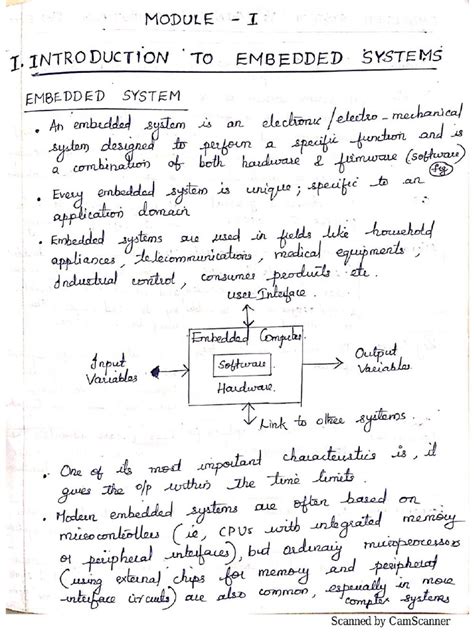 MODULE - I
I. INTRODUCTION TO EMBEDDED SYSTEMS
EMBEDDED SYSTEM
• An embedded system is an electronic/electro-mechanical
system designed to perform a specific function and is
a combination of both hardware & firmware (software)
• Every embedded system is unique; specific to an
application domain
• Embedded systems are used in fields like household
appliances, telecommunications, medical equipments,
industrial control, consumer products etc.
User Interface
Embedded Computer
Input
Variables
Software
Hardware
Output
Variables
Link to other systems
• One of its most important characteristics is, it
gives the o/p within the time limits.
• Modern embedded systems are often based on
microcontrollers (ie, CPUs with integrated memory
or peripheral interfaces), but ordinary microprocessors
(using external chips for memory and peripheral
interface circuits) are also common, especially in more
complex systems
Scanned by CamScanner